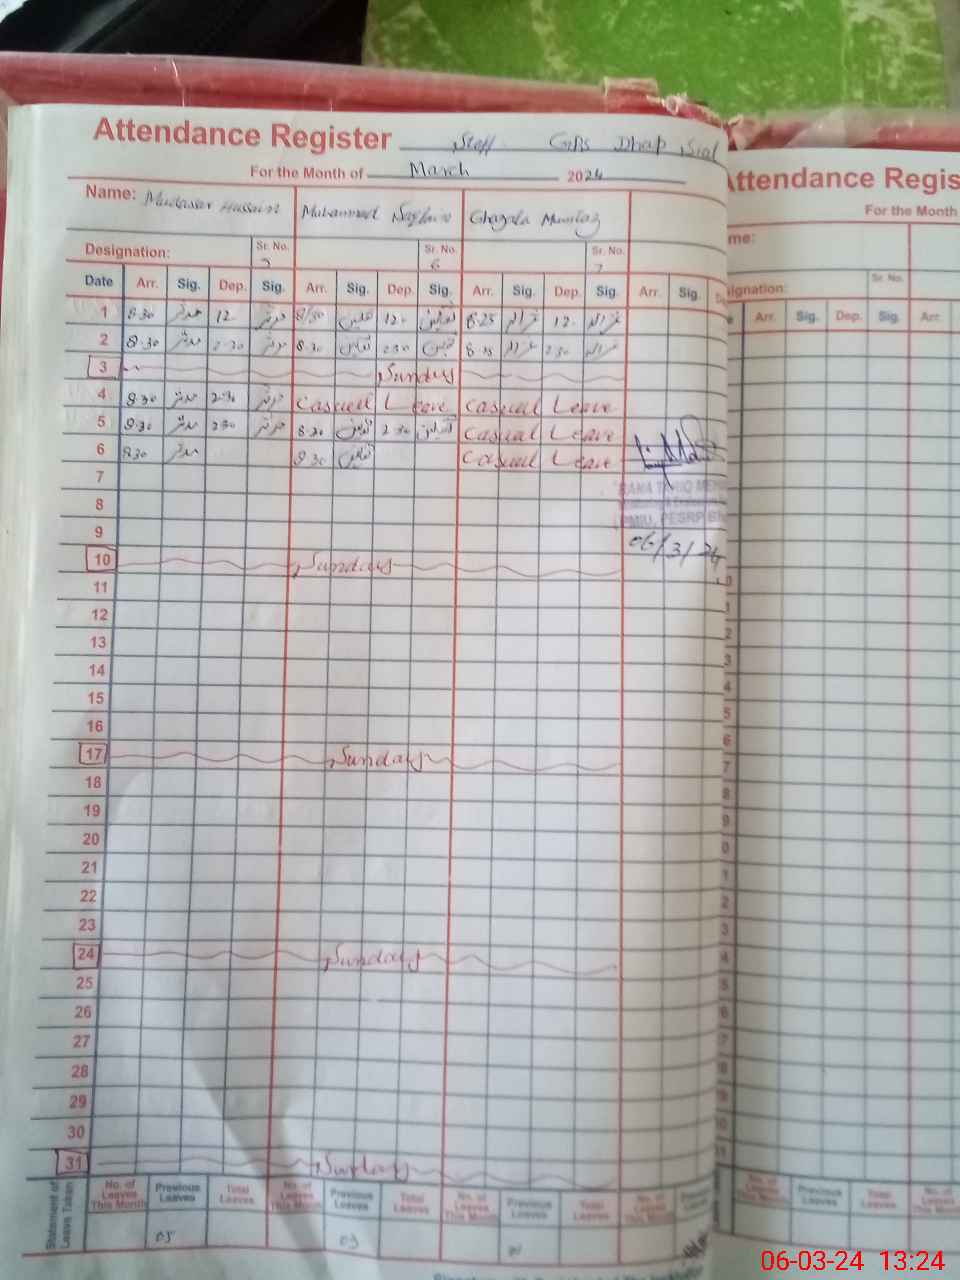 Attendance Register Staff GPS Dhap Sial
For the Month of March 2024
Name: Mudassar Hussain Muhammad Ghazala Mumtaz
Sr. No. Sr. No. Sr. No.
Designation: 6 7
Date Arr. Sig. Dep. Sig. Arr. Sig. Dep. Sig. Arr. Sig. Dep. Sig. Arr. Sig.
1 8:30 مدثر 12 مدثر 8:30 ثقلین 12 ثقلین 8:25 غزالہ 12 غزالہ
2 8:30 مدثر 2:30 مدثر 8:30 ثقلین 2:30 ثقلین غزالہ 2:30 غزالہ
3 Sunday
4 8:30 مدثر 2:30 مدثر Casual Leave Casual Leave
5 8:30 مدثر 2:30 مدثر 8:30 ثقلین 2:30 ثقلین Casual Leave
6 8:30 مدثر 8:30 ثقلین Casual Leave
7
RANA TARIQ
8
PMIU, PESRP
9
06/3/24
10 Sunday
11
12
13
14
15
16
17 Sunday
18
19
20
21
22
23
24 Sunday
25
26
27
28
29
30
31 Sunday
Statement of Leave Taken
No. of Leaves This Month Previous Leaves Total Leaves No. of Leaves This Month Previous Leaves Total Leaves No. of Leaves This Month Previous Leaves Total Leaves No. of Leaves This Month Previous Leaves
05 03 01
Attendance Regis
For the Month
me:
Sr. No.
signation:
Arr. Sig. Dep. Sig. Arr.
No. of Leaves This Month Previous Leaves Total Leaves No. of Leaves This Month
06-03-24 13:24